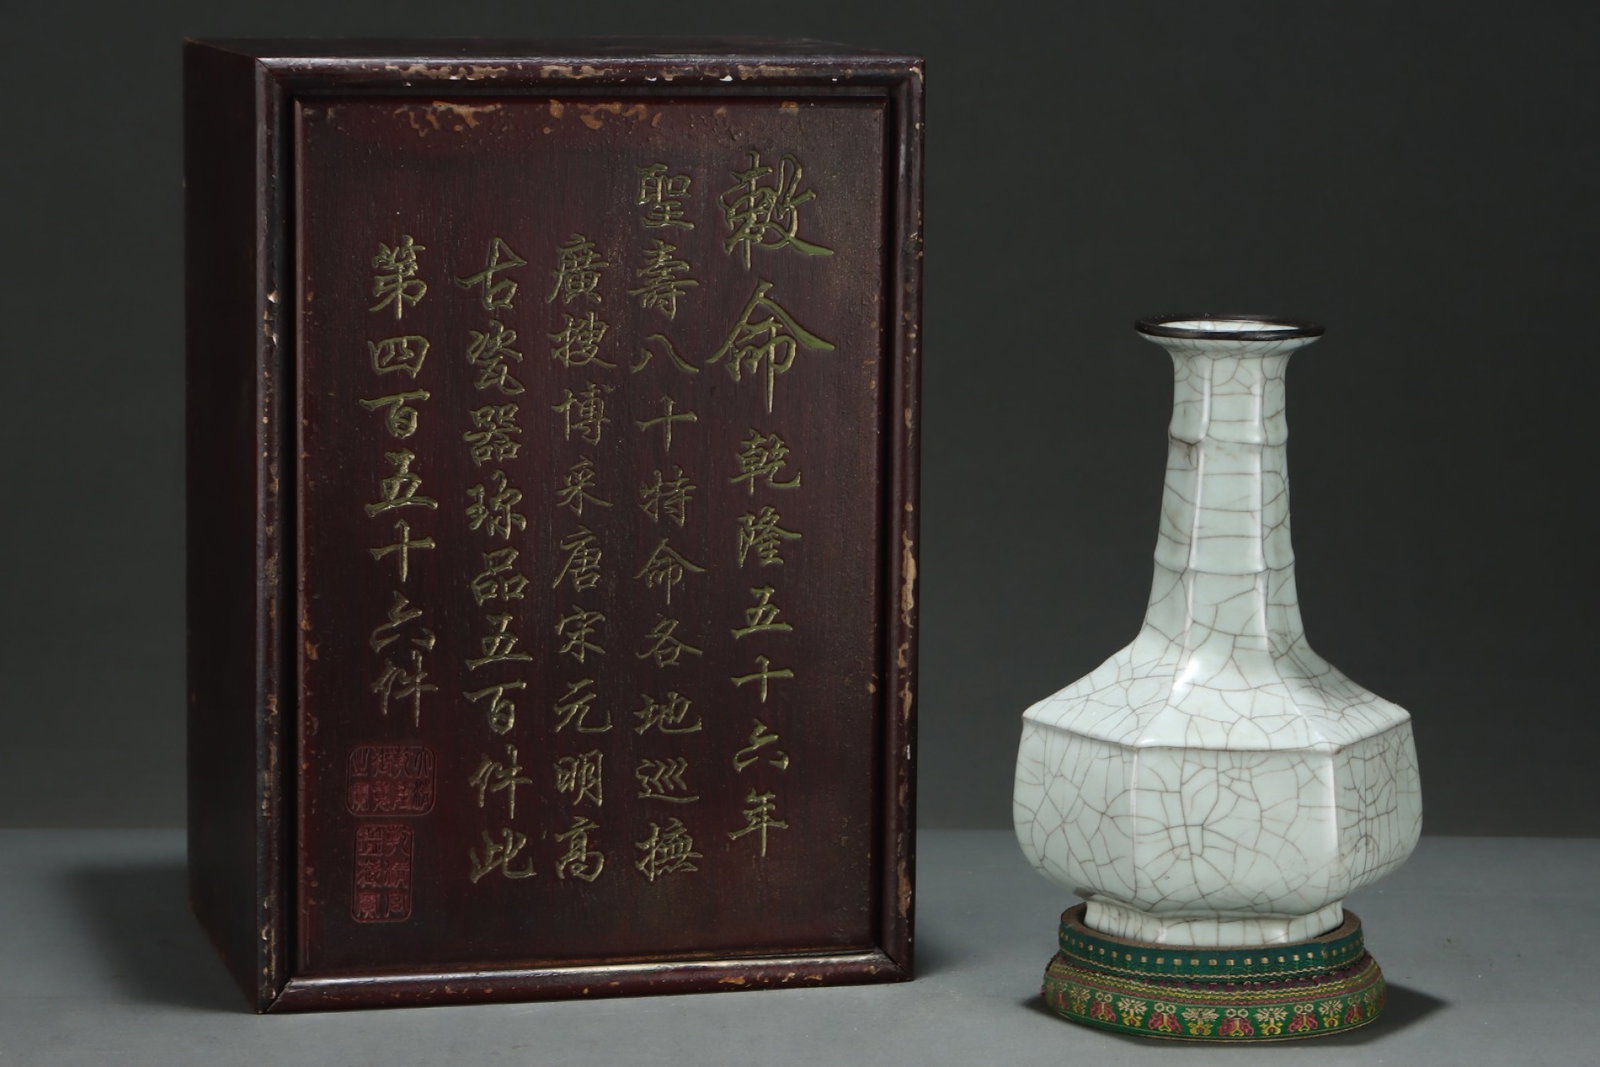 敕命乾隆五十六年
聖壽八十特命各地巡撫
廣搜博采唐宋元明高
古瓷器珍品五百件此
第四百五十六件